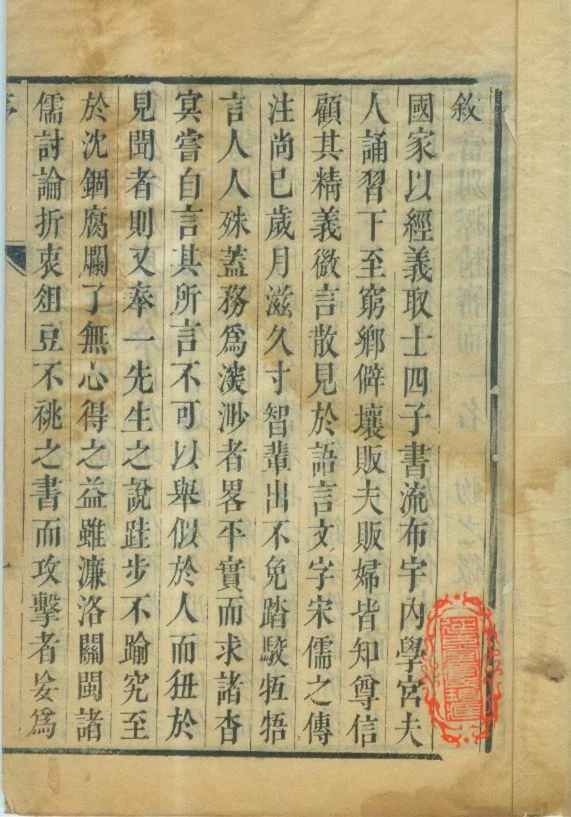 敘
國家以經義取士四子書流布宇內學宮夫
人誦習下至窮鄉僻壤販夫販婦皆知尊信
顧其精義微言散見於語言文字宋儒之傳
注尚已歲月滋久寸智輩出不免踏駮牴牾
言人人殊蓋務為淡渺者畧平實而求諸杳
冥嘗自言其所言不可以舉假於人而狃於
見聞者則又奉一先生之說跬步不踰究至
於沈錮腐爛了無心得之益雖濂洛關閩諸
儒討論折衷俎豆不祧之書而攻擊者妄為